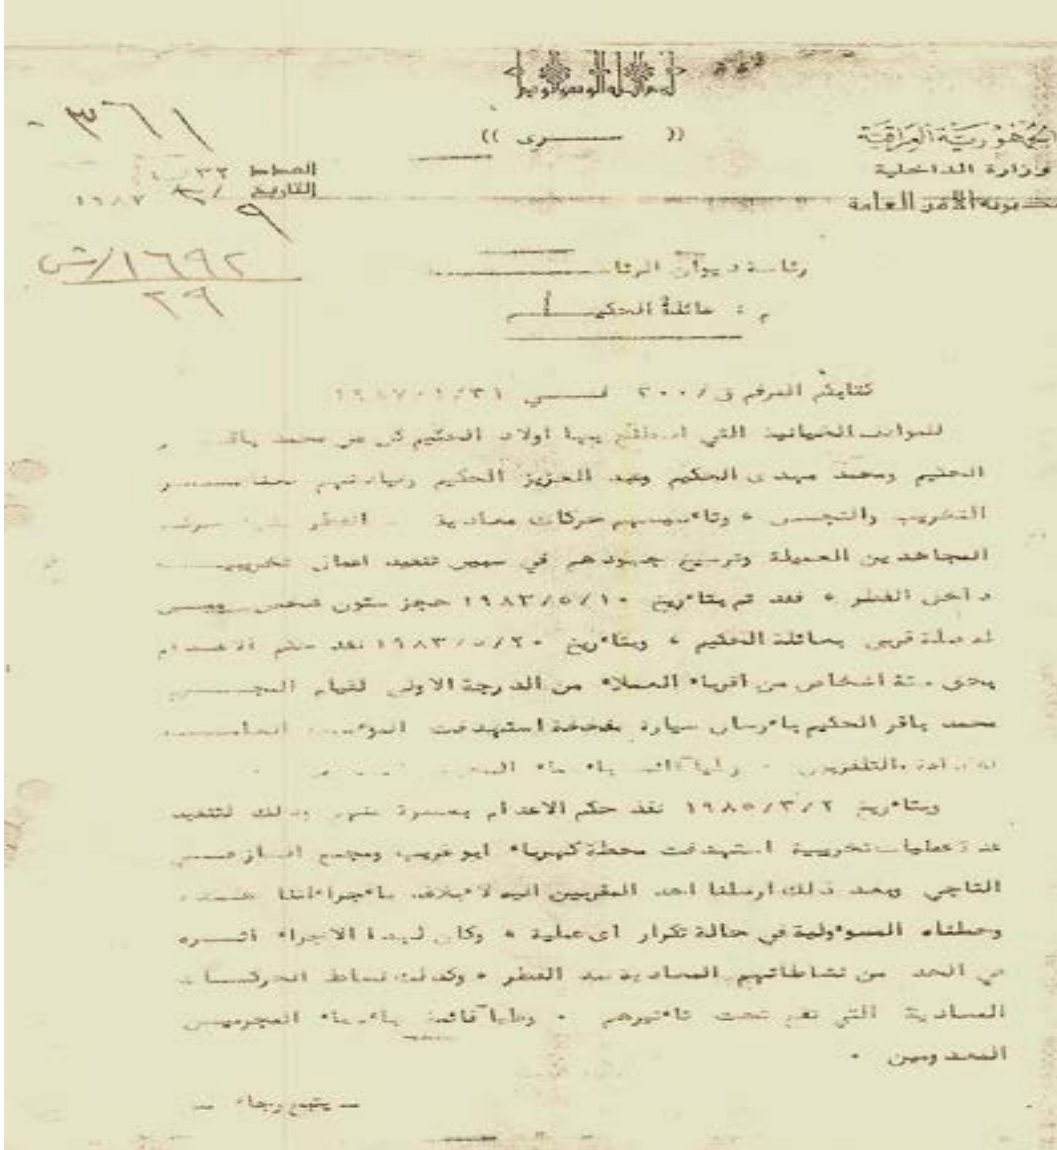 بسم الله الرحمن الرحيم
٣٦١
(( ســـرى ))
الجمهورية العراقية
وزارة الداخلية
مديرية الامن العامة
العدد
التاريخ / / ١٩٨٧
٩
١٦٩٢/ش
٢٩
رئاسة ديوان الرئاسة
م : عائلة الحكيم
كتابكم المرقم ق/٢٠٠ فـــي ١٩٨٧/١/٣١
للمواقف الخيانية التي اضطلع بها اولاد الحكيم كل من محمد باقر
الحكيم ومحمد مهدى الحكيم وعبد العزيز الحكيم وقيادتهم
التخريب والتجسس ، وتأسيسهم حركات معادية القطر
المجاهدين العميلة في سبيل تنفيذ اعمال تخريبيـــة
داخل القطر ، فقد تم بتأريخ ١٩٨٣/٥/١٠ حجز ستون شخص
له صلة قربى بعائلة الحكيم ، وبتأريخ ١٩٨٣/٥/٢٠ نفذ حكم الاعدام
بحق ستة اشخاص من اقرباء العملاء من الدرجة الاولى لقيام المجـــرم
محمد باقر الحكيم بأرسال سيارة مفخخة استهدفت المؤسسة العامـــة
للاذاعة والتلفزيون . وطيا قائمة بأسماء
وبتأريخ ١٩٨٥/٣/٢ نفذ حكم الاعدام بعشرة منهم وذلك لتنفيذ
عدة عمليات تخريبية استهدفت محطة كهرباء ابو غريب ومجمع الغاز فـــي
التاجي وبعد ذلك ارسلنا احد المقربين اليه لابلاغه بأجراءاتنا
وحملناه المسوولية في حالة تكرار اى عملية ، وكان لهذا الاجراء اثـــره
في الحد من نشاطاتهم المعادية ضد القطر ، وكذلك نشاط الحركـــات
المعادية التي تقع تحت تأثيرهم . وطيا قائمة بأسماء المجرميـــن
المعدومين .
ــ يتبع رجاء ــ